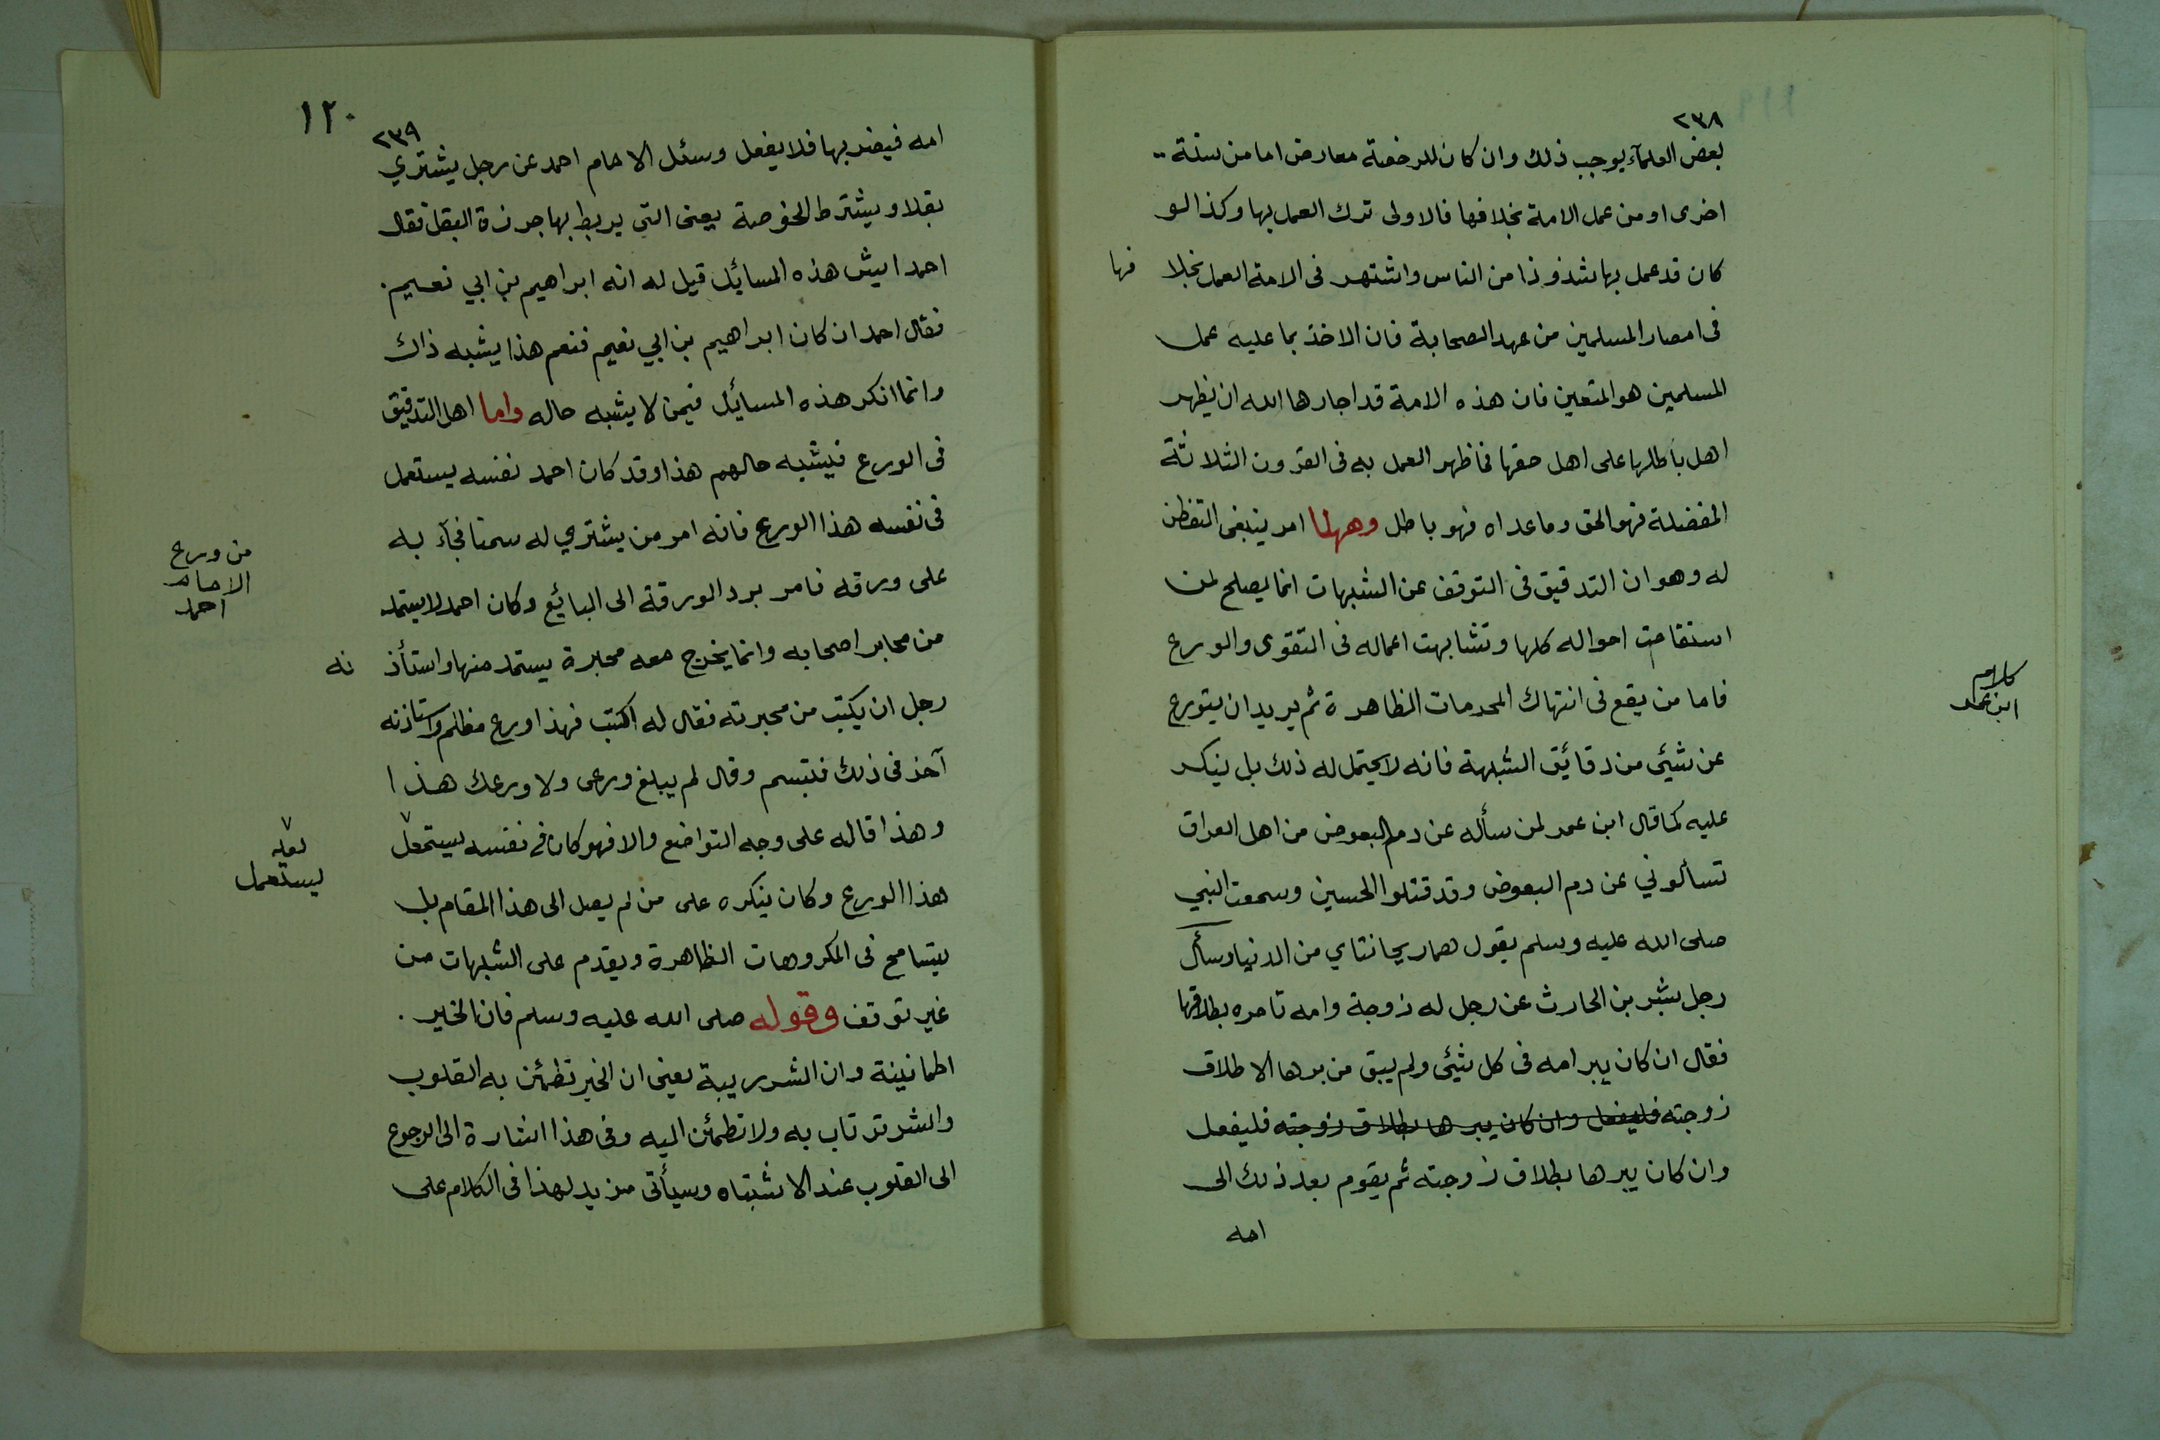 ٢٣٨
بعض العلمآء يوجب ذلك وان كان للرخصة معارض اما من سنة
اخرى او من عمل الامة بخلافها فالاولى ترك العمل بها وكذا لو
كان قد عمل بها شذوذا من الناس واشتهر فى الامة العمل بخلا فها
فى امصار المسلمين من عهد الصحابة فان الاخذ بما عليه عمل
المسلمين هو المتعين فان هذه الامة قد اجارها الله ان يظهر
اهل باطلها على اهل حقها فما ظهر العمل به فى القرون الثلاثة
المفضلة فهو الحق وما عداه فهو باطل وههنا امر ينبغى التفطن
له وهو ان التدقيق فى التوقف عن الشبهات انما يصلح لمن
استقامت احواله كلها وتشابهت اعماله فى التقوى والورع
فاما من يقع فى انتهاك المحرمات الظاهرة ثم يريد ان يتورع
عن شيئ من دقائق الشبهة فانه لا يحتمل له ذلك بل ينكر
عليه كما قال ابن عمر لمن سأله عن دم البعوض من اهل العراق
تسألوني عن دم البعوض وقد قتلوا الحسين وسمعت النبي
صلى الله عليه وسلم يقول هما ريحانتاي من الدنيا وسأل
رجل بشر بن الحارث عن رجل له زوجة وامه تامره بطلاقها
فقال ان كان يبر امه فى كل شيئ ولم يبق من برها الا طلاق
زوجته فليفعل وان كان يبرها بطلاق زوجته فليفعل
وان كان يبرها بطلاق زوجته ثم يقوم بعد ذلك الى
امه
كلام
ابن عمر
١٢٠
٢٣٩
امه فيضربها فلا يفعل وسئل الامام احمد عن رجل يشتري
بقلا ويشترط الخوصة يعنى التي يربط بها جرزة البقل فقال
احمد ايش هذه المسايل قيل له انه ابراهيم بن ابي نعيم.
فقال احمد ان كان ابراهيم بن ابي نعيم فنعم هذا يشبه ذاك
وانما انكر هذه المسايل فيمن لا يشبه حاله واما اهل التدقيق
فى الورع فيشبه حالهم هذا وقد كان احمد نفسه يستعمل
فى نفسه هذا الورع فانه امر من يشتري له سمنا فجآء به
على ورقه فامر برد الورقة الى البائع وكان احمد لا يستمد
من محابر اصحابه وانما يخرج معه محبرة يستمد منها واستأذ نه
رجل ان يكتب من محبرته فقال له اكتب فهذا ورع مظلم واستاذنه
آخر فى ذلك فتبسم وقال لم يبلغ ورعى ولا ورعك هذا
وهذا قاله على وجه التواضع والا فهو كان في نفسه ليستمعل
هذا الورع وكان ينكره على من لم يصل الى هذا المقام بل
يتسامح فى المكروهات الظاهرة ويقدم على الشبهات من
غير توقف وقوله صلى الله عليه وسلم فان الخير.
اطمانينة وان الشر ريبة يعنى ان الخير تطمئن به القلوب
والشر ترتاب به ولا تطمئن اليه وفى هذا اشارة الى الرجوع
الى القلوب عند الاشتباه وسيأتى مزيد لهذا فى الكلام على
من ورع
الامام
احمد
لعله
ليستعمل